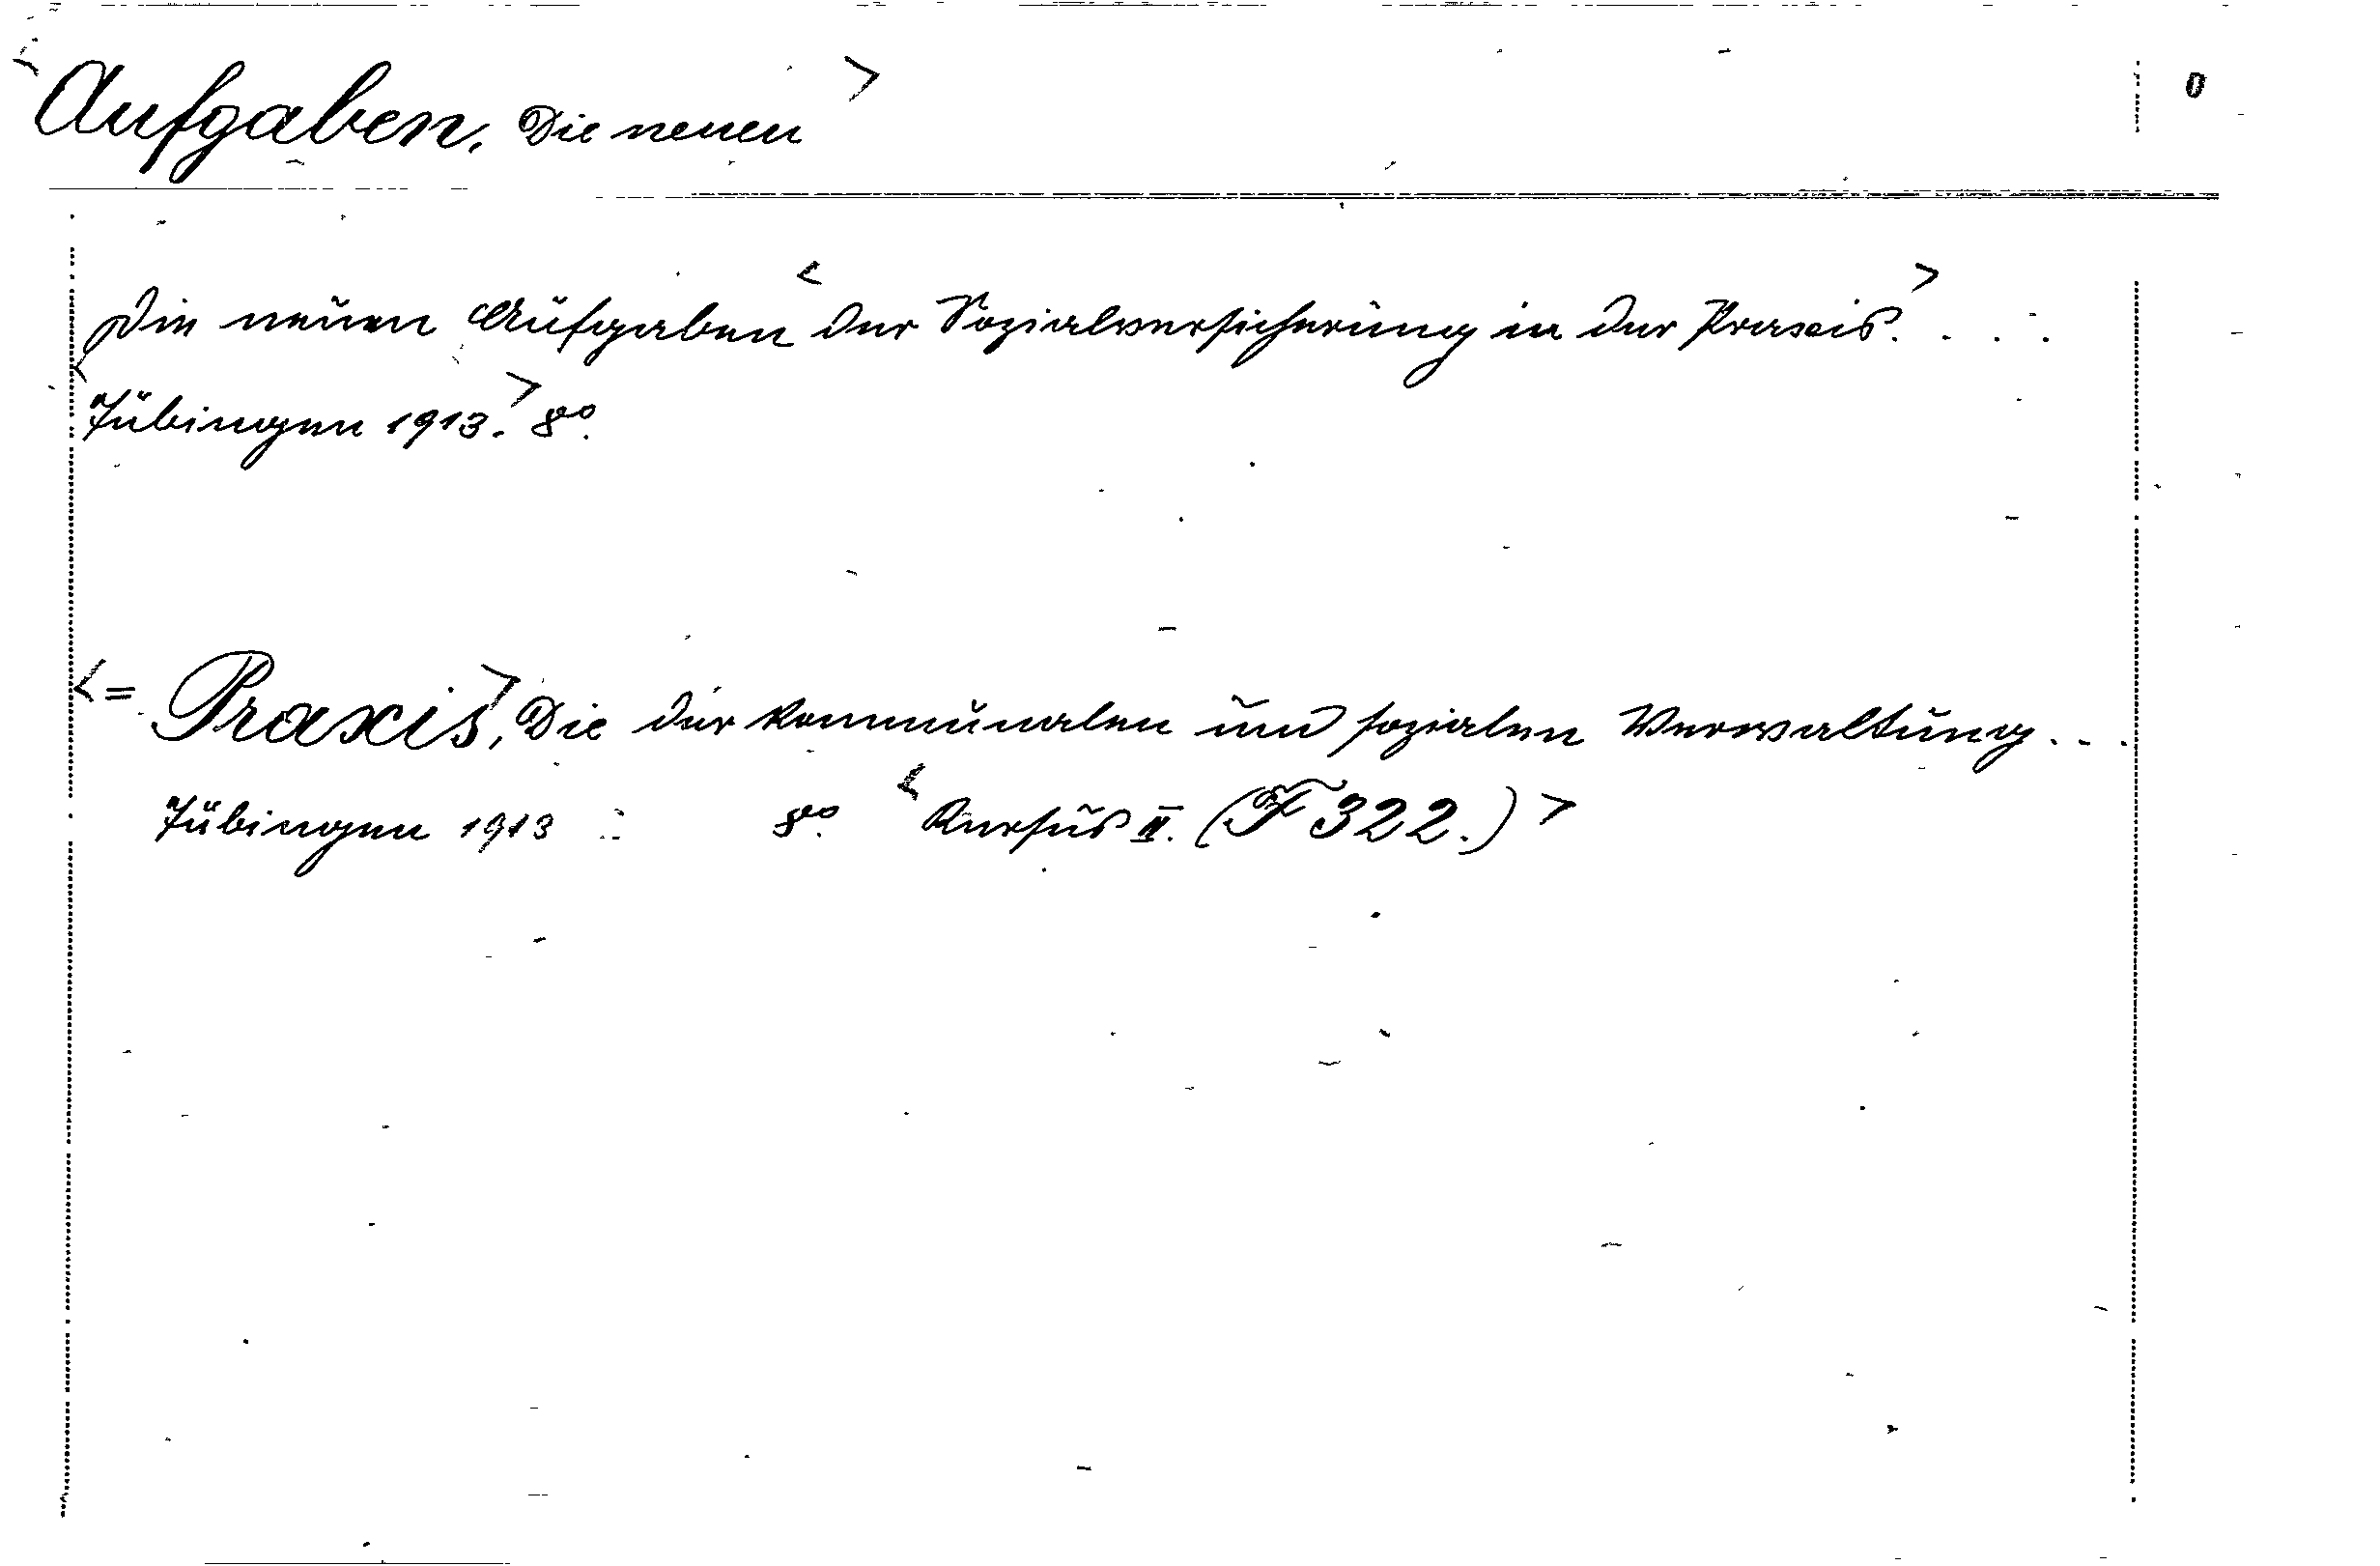 <Aufgaben, Die neuen>
0
Die neuen Aufgaben <der Sozialversicherung in der Praxis.> . . .
<Tübingen 1913.> 8º.
<= Praxis>, Die der kommunalen und sozialen Verwaltung . . .
Tübingen 1913 8º. <Kursus II. (F 322.)>